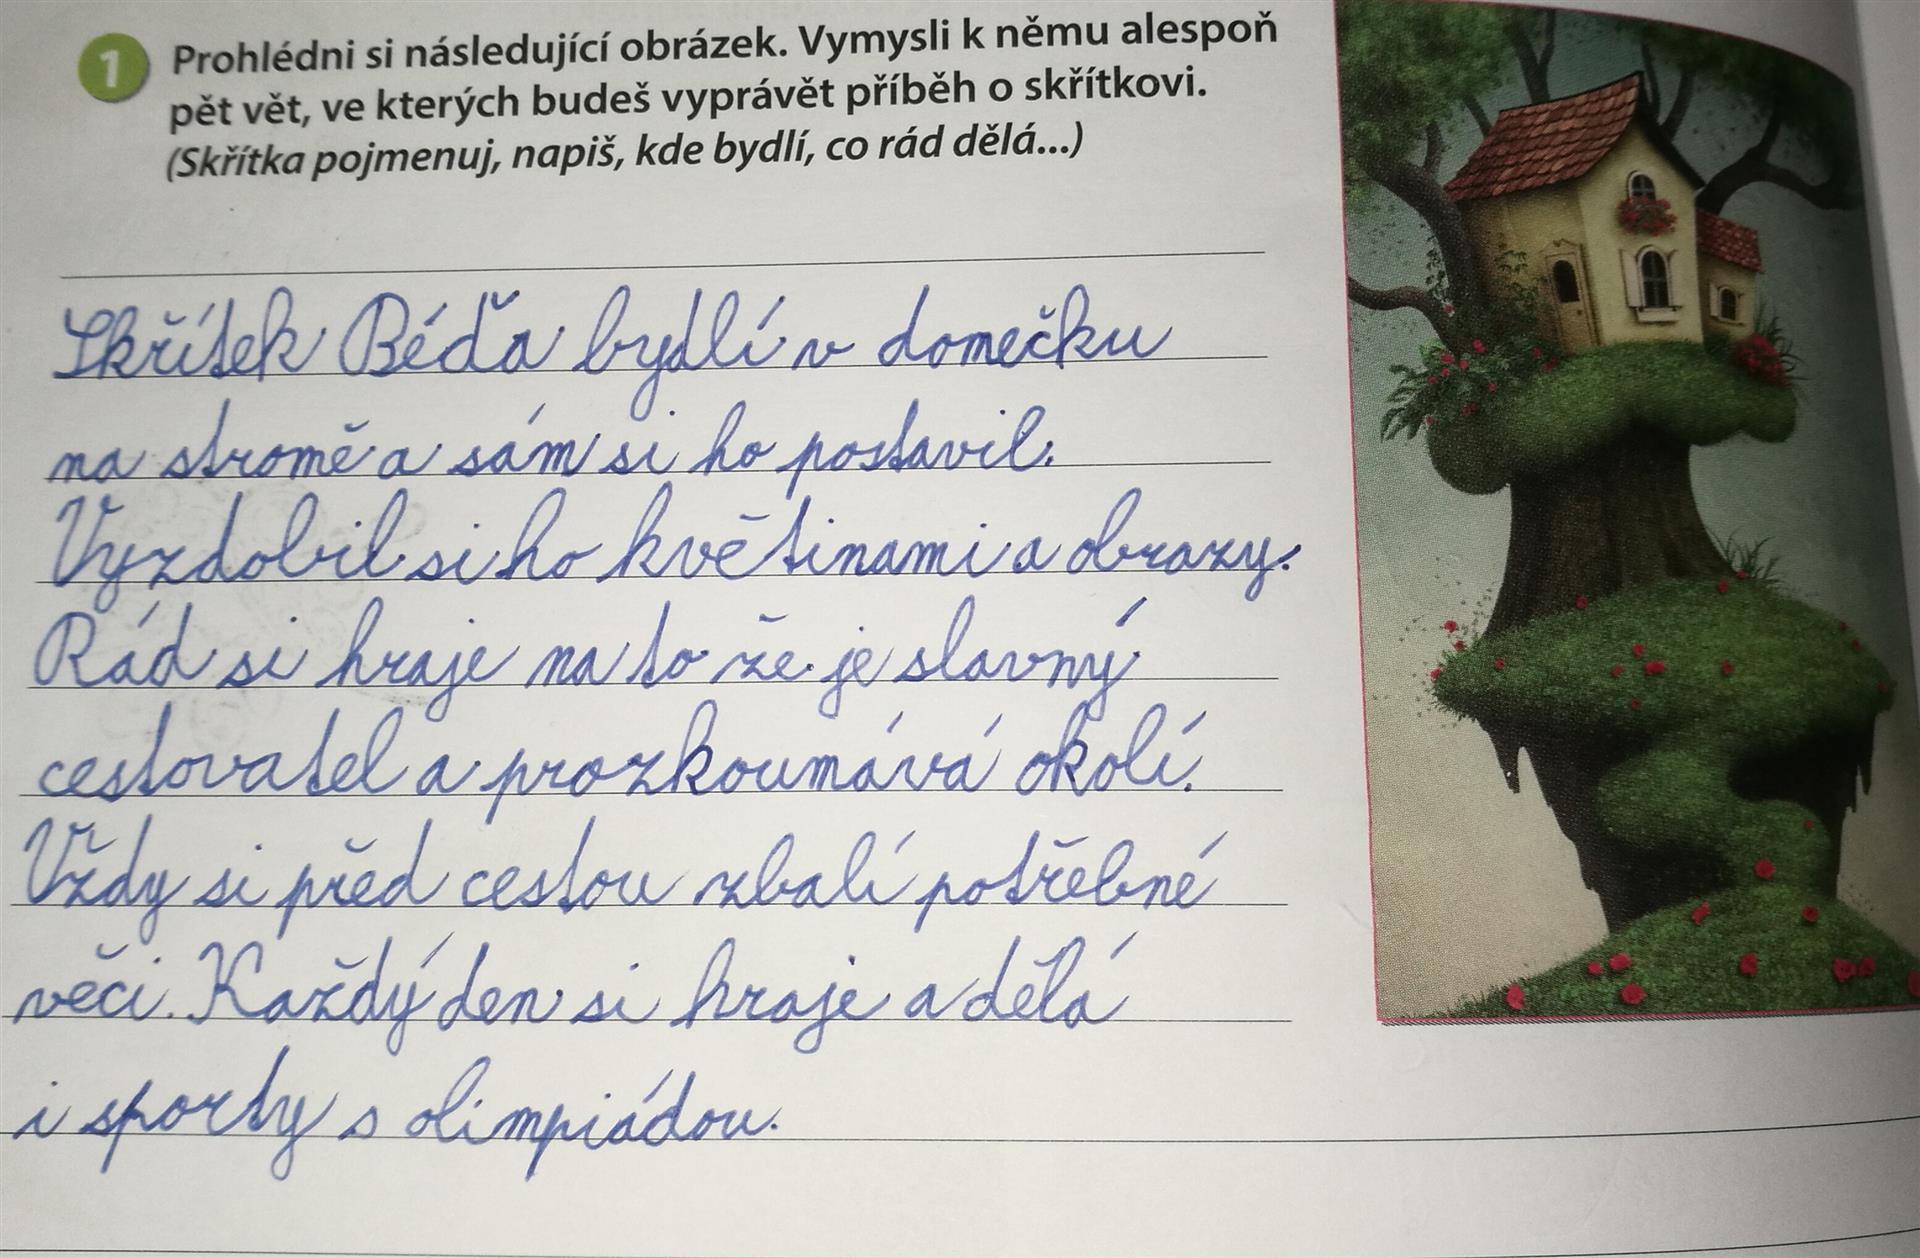 1 Prohlédni si následující obrázek. Vymysli k němu alespoň
pět vět, ve kterých budeš vyprávět příběh o skřítkovi.
(Skřítka pojmenuj, napiš, kde bydlí, co rád dělá...)
Skřítek Béďa bydlí v domečku
na stromě a sám si ho postavil.
Vyzdobil si ho květinami a obrazy.
Rád si hraje na to že je slavný
cestovatel a prozkoumává okolí.
Vždy si před cestou zbalí potřebné
věci. Každý den si hraje a dělá
i sporty s olimpiádou.